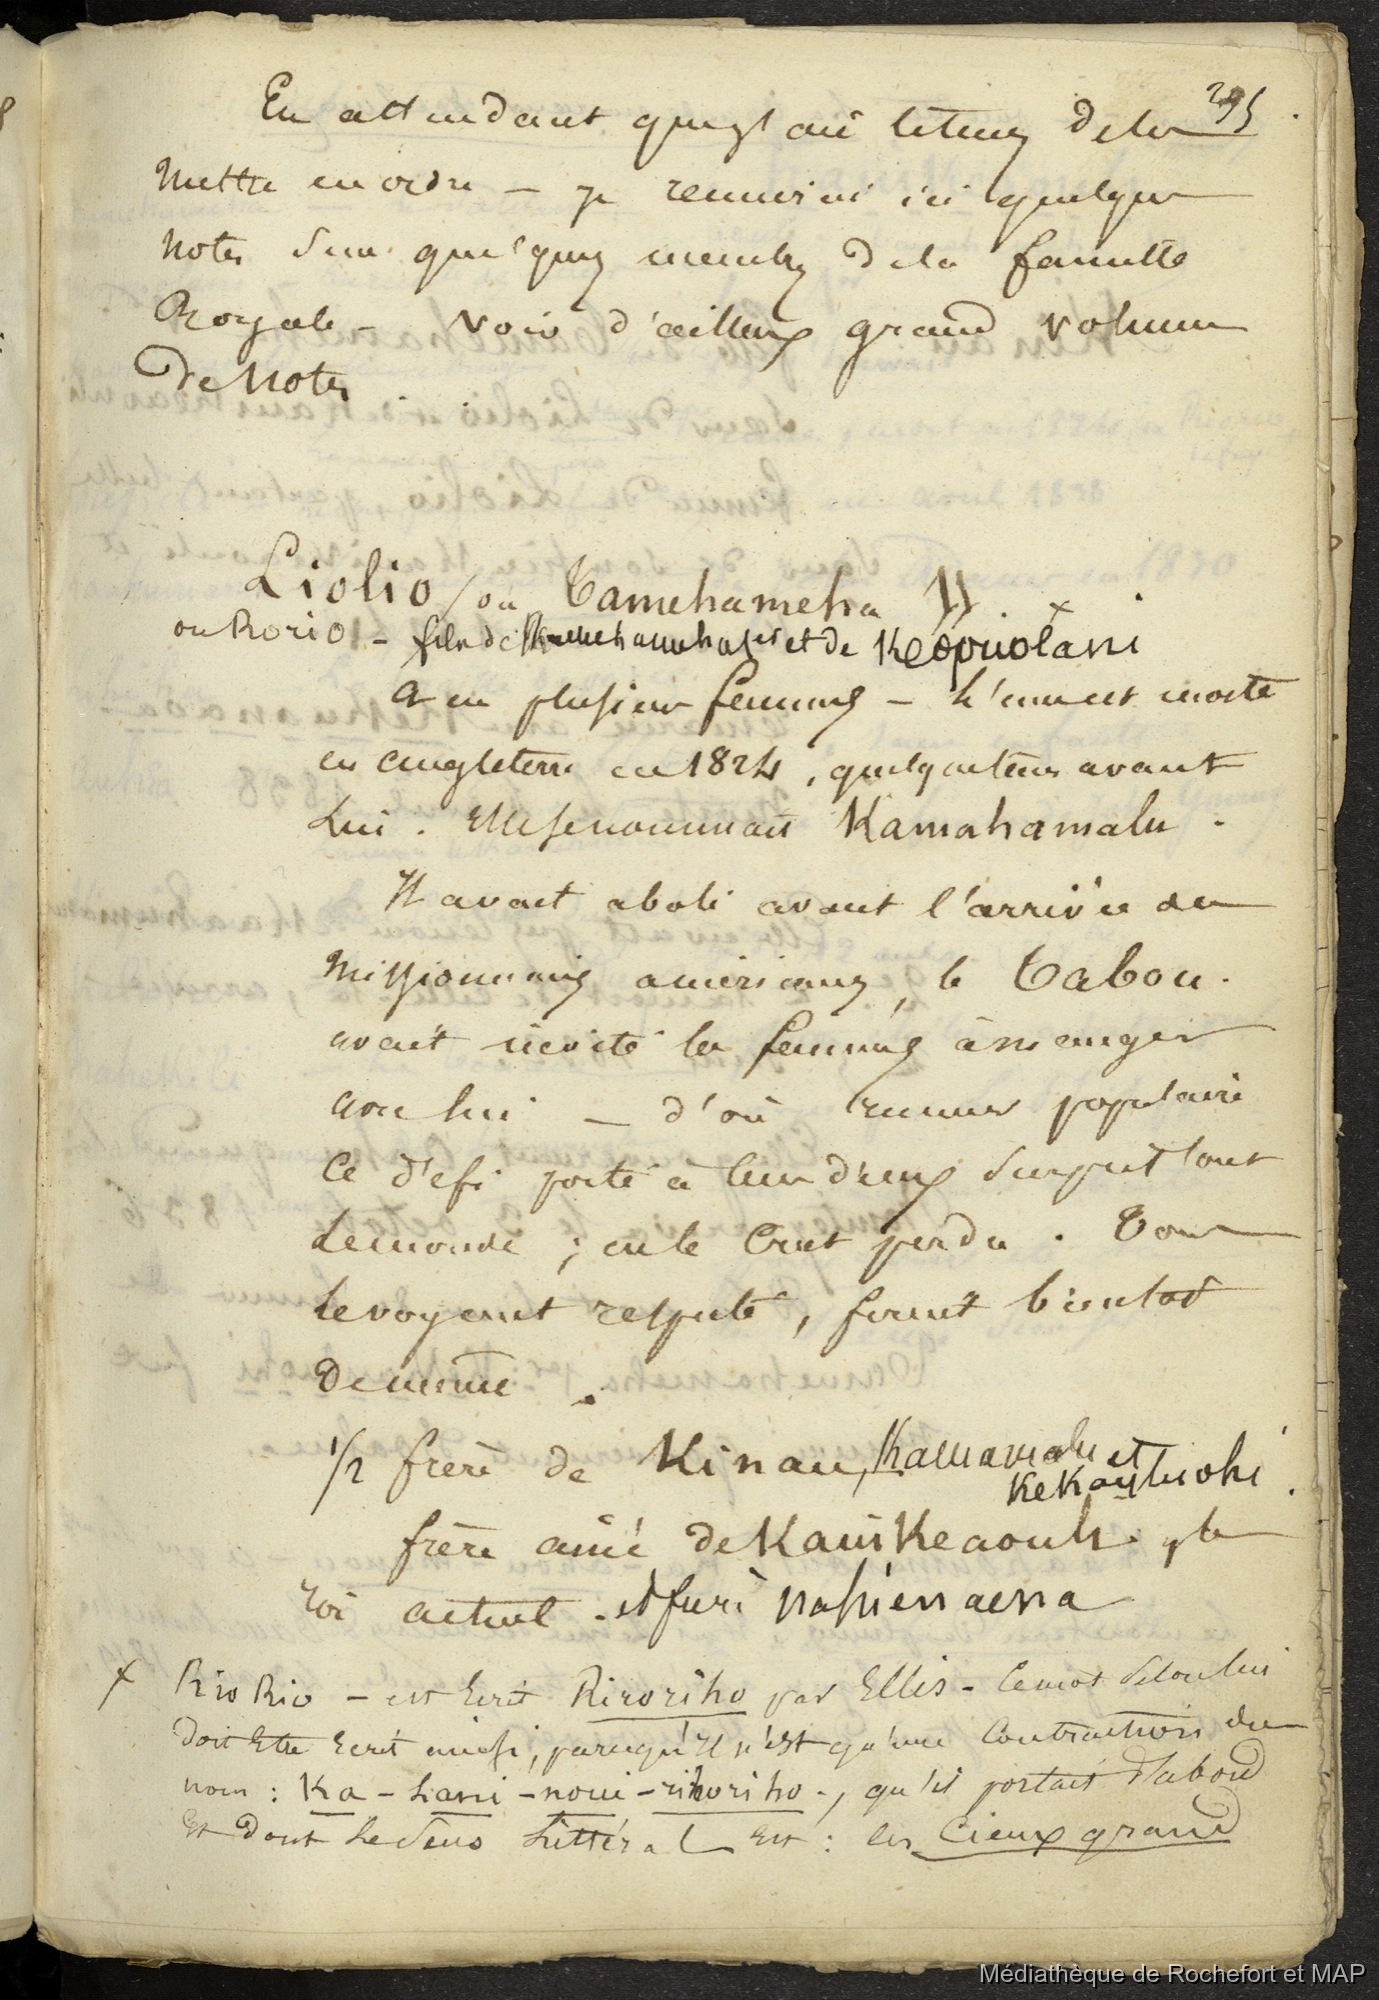 295
En attendant que j'aie le temps de les
mettre en ordre – je reunirai ici quelques
notes sur quelques membres de la famille
Royale – Voir d'ailleurs grand volume
de Notes
Liolio / ou Tamehameha II. x
ou Rorio – fils de Kamehameha 1er et de Keopuolani
a eu plusieurs femmes – l'une est morte
en angleterre en 1824, quelque tems avant
lui. Elle se nommait Kamahamalu.
Il avait aboli avant l'arrivée des
missionnaires americains, le Tabou.
avait invité les femmes à manger
avec lui – d'où rumeur populaire
Ce défi porté à leurs dieux surprit tout
le monde ; on le crut perdu. Tous
le voyant respecté, firent bientot
de même.
1/2 frère de Kinau, Kamamalu et
Kekauluohi.
frère ainé de Kauikeaouli, le
roi actuel. et fieri nahienaena
x RioRio – est écrit Rihoriho par Ellis – le mot selon lui
doit etre ecrit ainsi, parcequ'il n'est qu'une contraction du
nom : Ka-lani-noui-rihoriho, qu'il portait d'abord
et dont le sens littéral est : les Cieux grand
Médiathèque de Rochefort et MAP